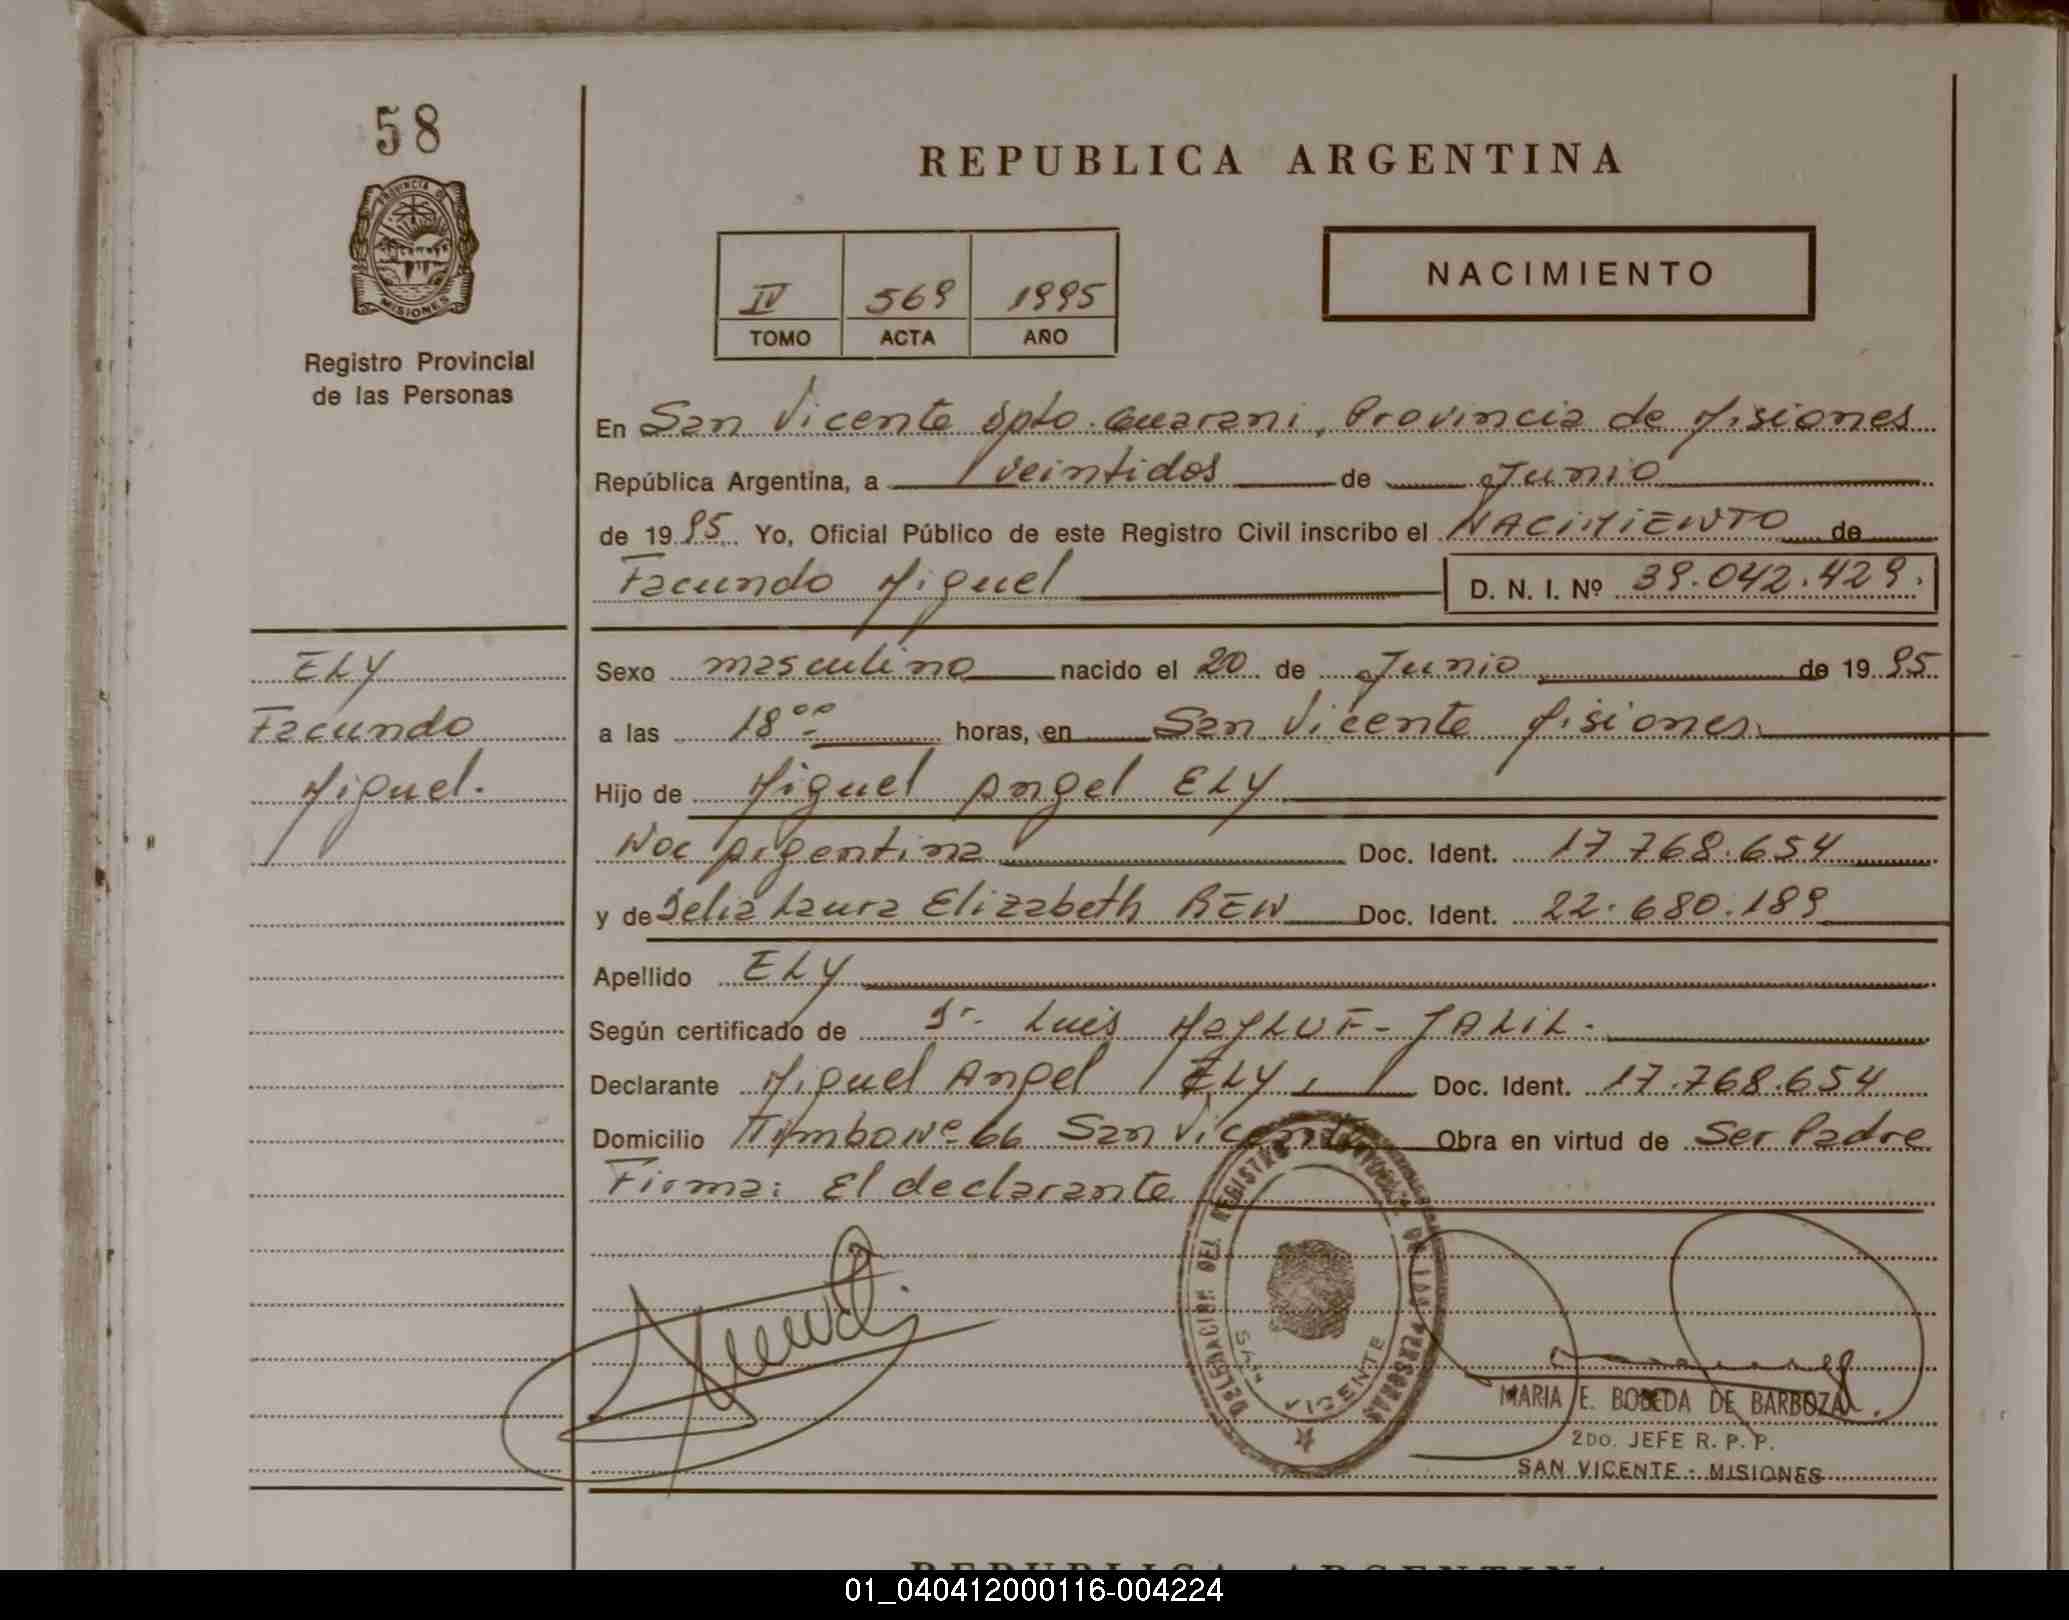 58
PROVINCIA DE
MISIONES
Registro Provincial
de las Personas
REPUBLICA ARGENTINA
IV 569 1995
TOMO ACTA AÑO
NACIMIENTO
En San Vicente Dpto. Guarani, Provincia de Misiones
República Argentina, a veintidos de Junio
de 1995 Yo, Oficial Público de este Registro Civil inscribo el NACIMIENTO de
Facundo Miguel D. N. I. Nº 39.042.429.
ELY
Facundo
Miguel.
Sexo masculino nacido el 20 de Junio de 1995
a las 18ºº horas, en San Vicente Misiones.
Hijo de Miguel Angel ELY
Nac Argentina Doc. Ident. 17.768.654
y de Delia Laura Elizabeth REN Doc. Ident. 22.680.189
Apellido ELY
Según certificado de Dr. Luis JALIL.
Declarante Miguel Angel ELY Doc. Ident. 17.768.654
Domicilio Nº 66 San Vicente Obra en virtud de Ser Padre
Firma: El declarante
DELEGACION DEL REGISTRO DE LAS PERSONAS
SAN VICENTE
MARIA E. BOBEDA DE BARBOZA
2DO. JEFE R. P. P.
SAN VICENTE - MISIONES
REPUBLICA ARGENTINA
01_040412000116-004224